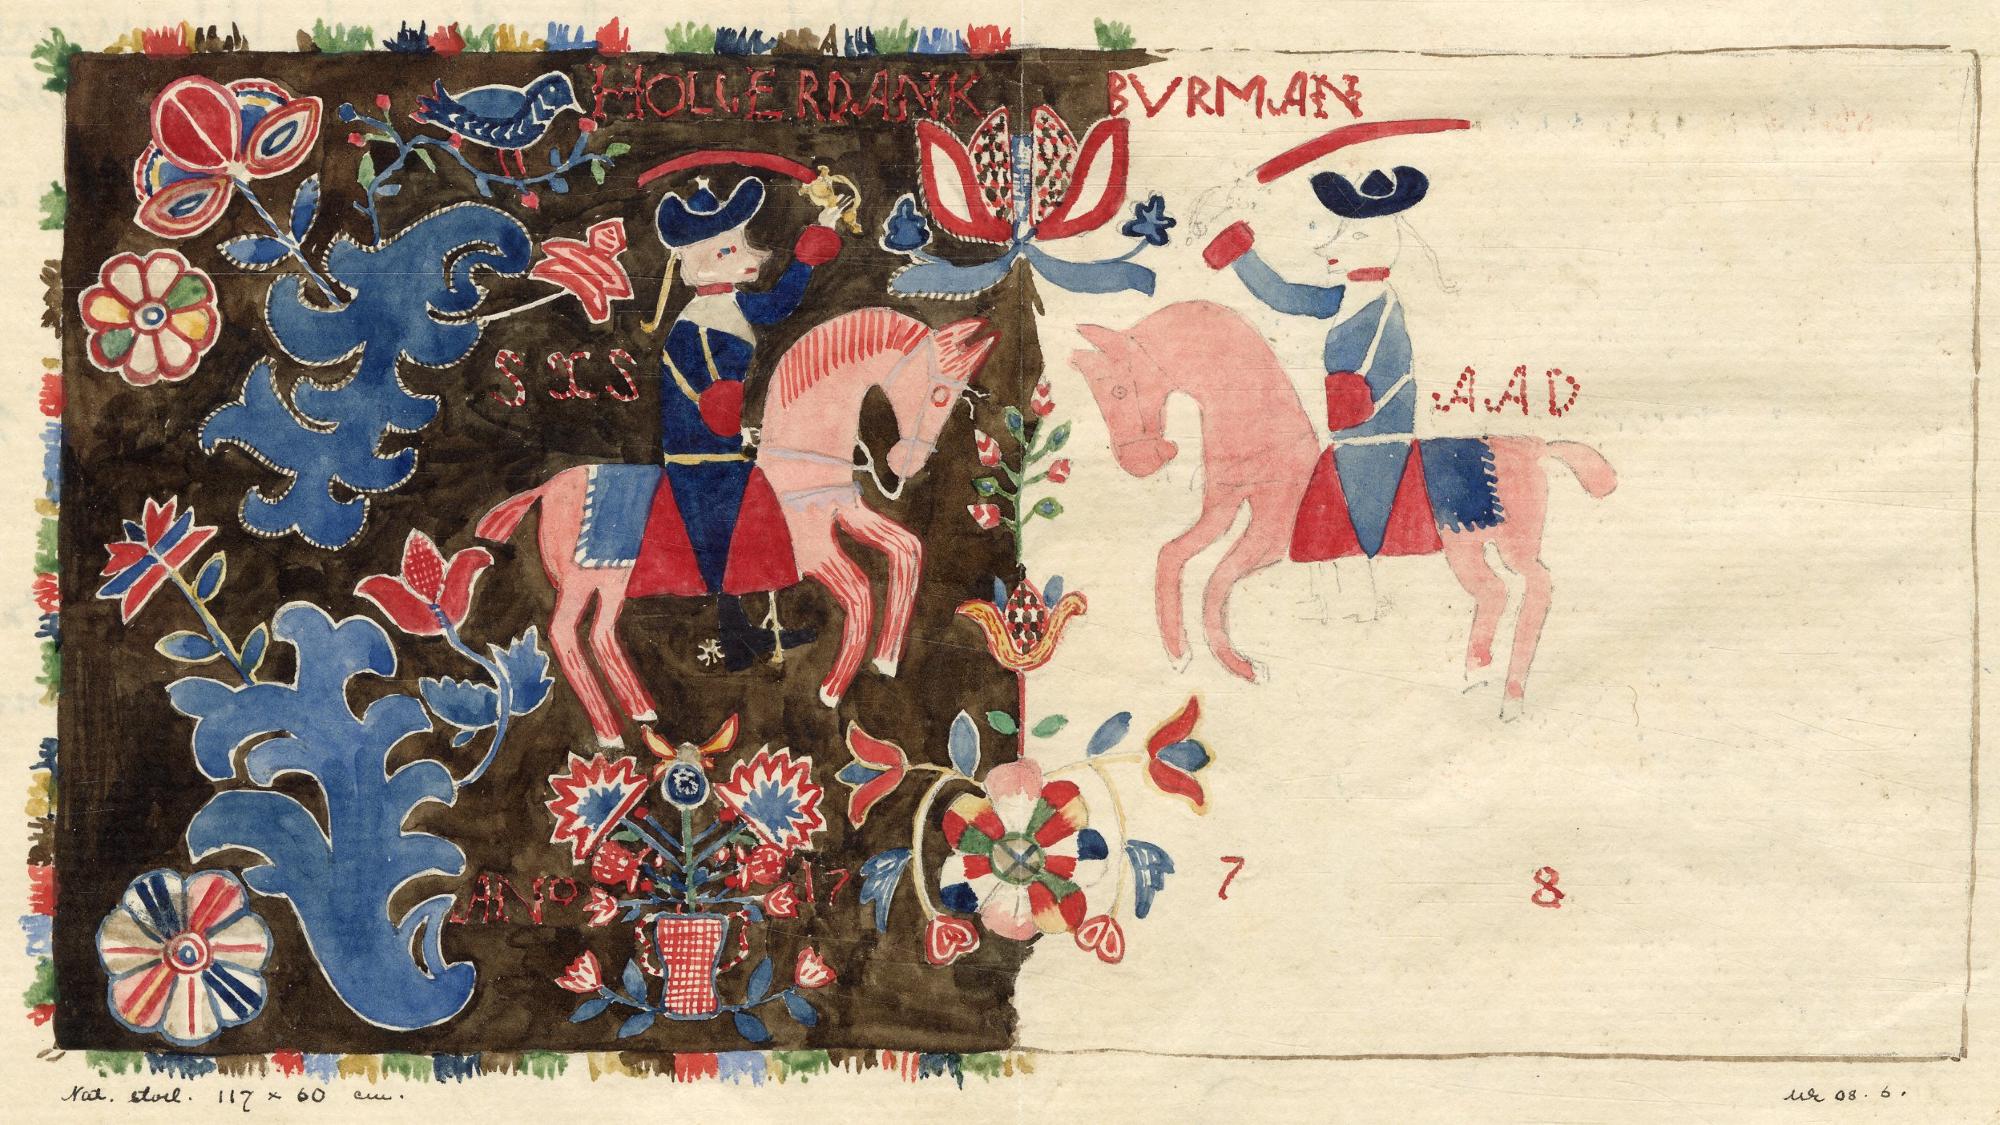 HOLLERDANK BVRMAN
SXS AAD
ANO 17 7 8
Nat. storl. 117 x 60 cm.
08. 6.